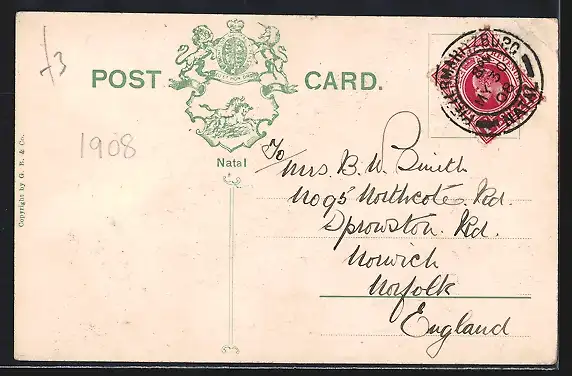 f3
POST CARD.
1908
Natal
Copyright by G. B. & Co.
To
Mrs. B. W. Smith
No 95 Northcote. Rd.
Sprowston. Rd.
Norwich
Norfolk
England